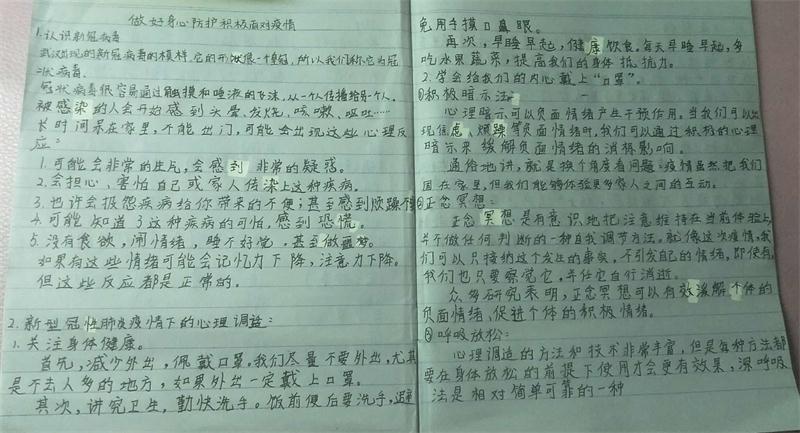 做好身心防护积极面对疫情
1.认识新冠病毒
武汉出现的新冠病毒的模样,它的形状很像一个皇冠,所以我们称它为冠
状病毒.
冠状病毒很容易通过触摸和唾液的飞沫,从一个人传播给另一个人。
被感染的人会开始感到头晕,发烧,咳嗽,呕吐……
长时间呆在家里,不能出门,可能会出现这些心理反
应:
1.可能会非常的生气,会感到非常的疑惑。
2.会担心、害怕自己或家人传染上这种疾病。
3.也许会报怨疾病给你带来的不便;甚至感到烦躁不
4.可能知道了这种疾病的可怕,感到恐慌。
5.没有食欲,闹情绪,睡不好觉,甚至做噩梦。
如果有这些情绪可能会记忆力下降,注意力下降。
但这些反应都是正常的。
2.新型冠性肺炎疫情下的心理调适:
1.关注身体健康。
首先,减少外出,佩戴口罩。我们尽量不要外出,尤其
是不去人多的地方,如果外出一定戴上口罩。
其次,讲究卫生,勤快洗手。饭前便后要洗手,避
免用手摸口鼻眼。
再次,早睡早起,健康饮食。每天早睡早起,多
吃水果蔬菜,提高我们的身体抵抗力。
2.学会给我们的内心戴上“口罩”。
①积极暗示法:
心理暗示可以负面情绪产生干预作用。当我们可以出
现焦虑、烦躁等负面情绪时,我们可以通过积极的心理
暗示来缓解负面情绪的消极影响。
通俗地讲,就是换个角度看问题。疫情虽然把我们
困在家里,但我们能够体验更多家人之间的互动。
②正念冥想:
正念冥想是有意识地把注意维持在当前体验上,
并不做任何判断的一种自我调节方法。就像这次疫情,我
们可以只接纳这个发生的事实,不引发自己的情绪,即使有,
我们也只要察觉它,并任它自行消逝。
众多研究表明,正念冥想可以有效缓解个体的
负面情绪,促进个体的积极情绪。
③呼吸放松:
心理调适的方法和技术非常丰富,但是每种方法都
要在身体放松的前提下使用才会更有效果,深呼吸
法是相对简单可靠的一种